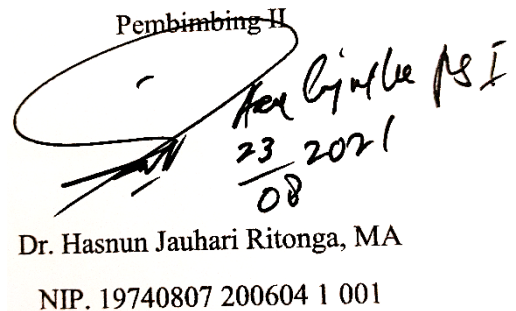 Pembimbing II
Acc ke PS I
23 2021
08
Dr. Hasnun Jauhari Ritonga, MA
NIP. 19740807 200604 1 001